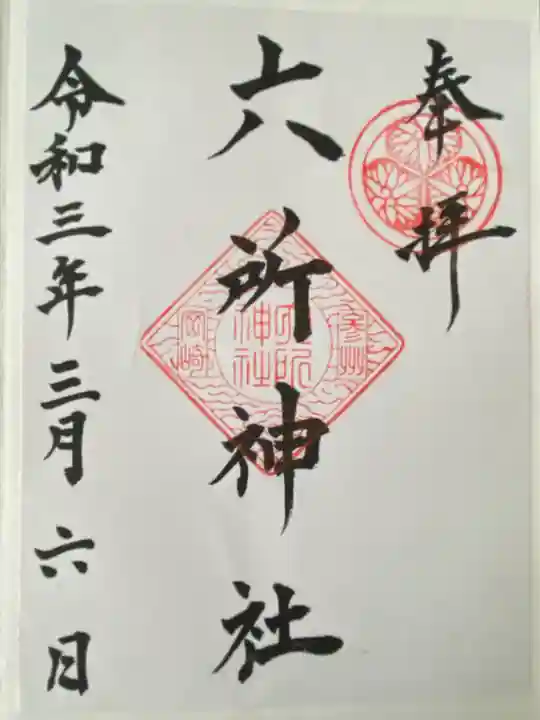 奉拝
参州
六所神社
六所神社
岡崎
令和三年三月六日